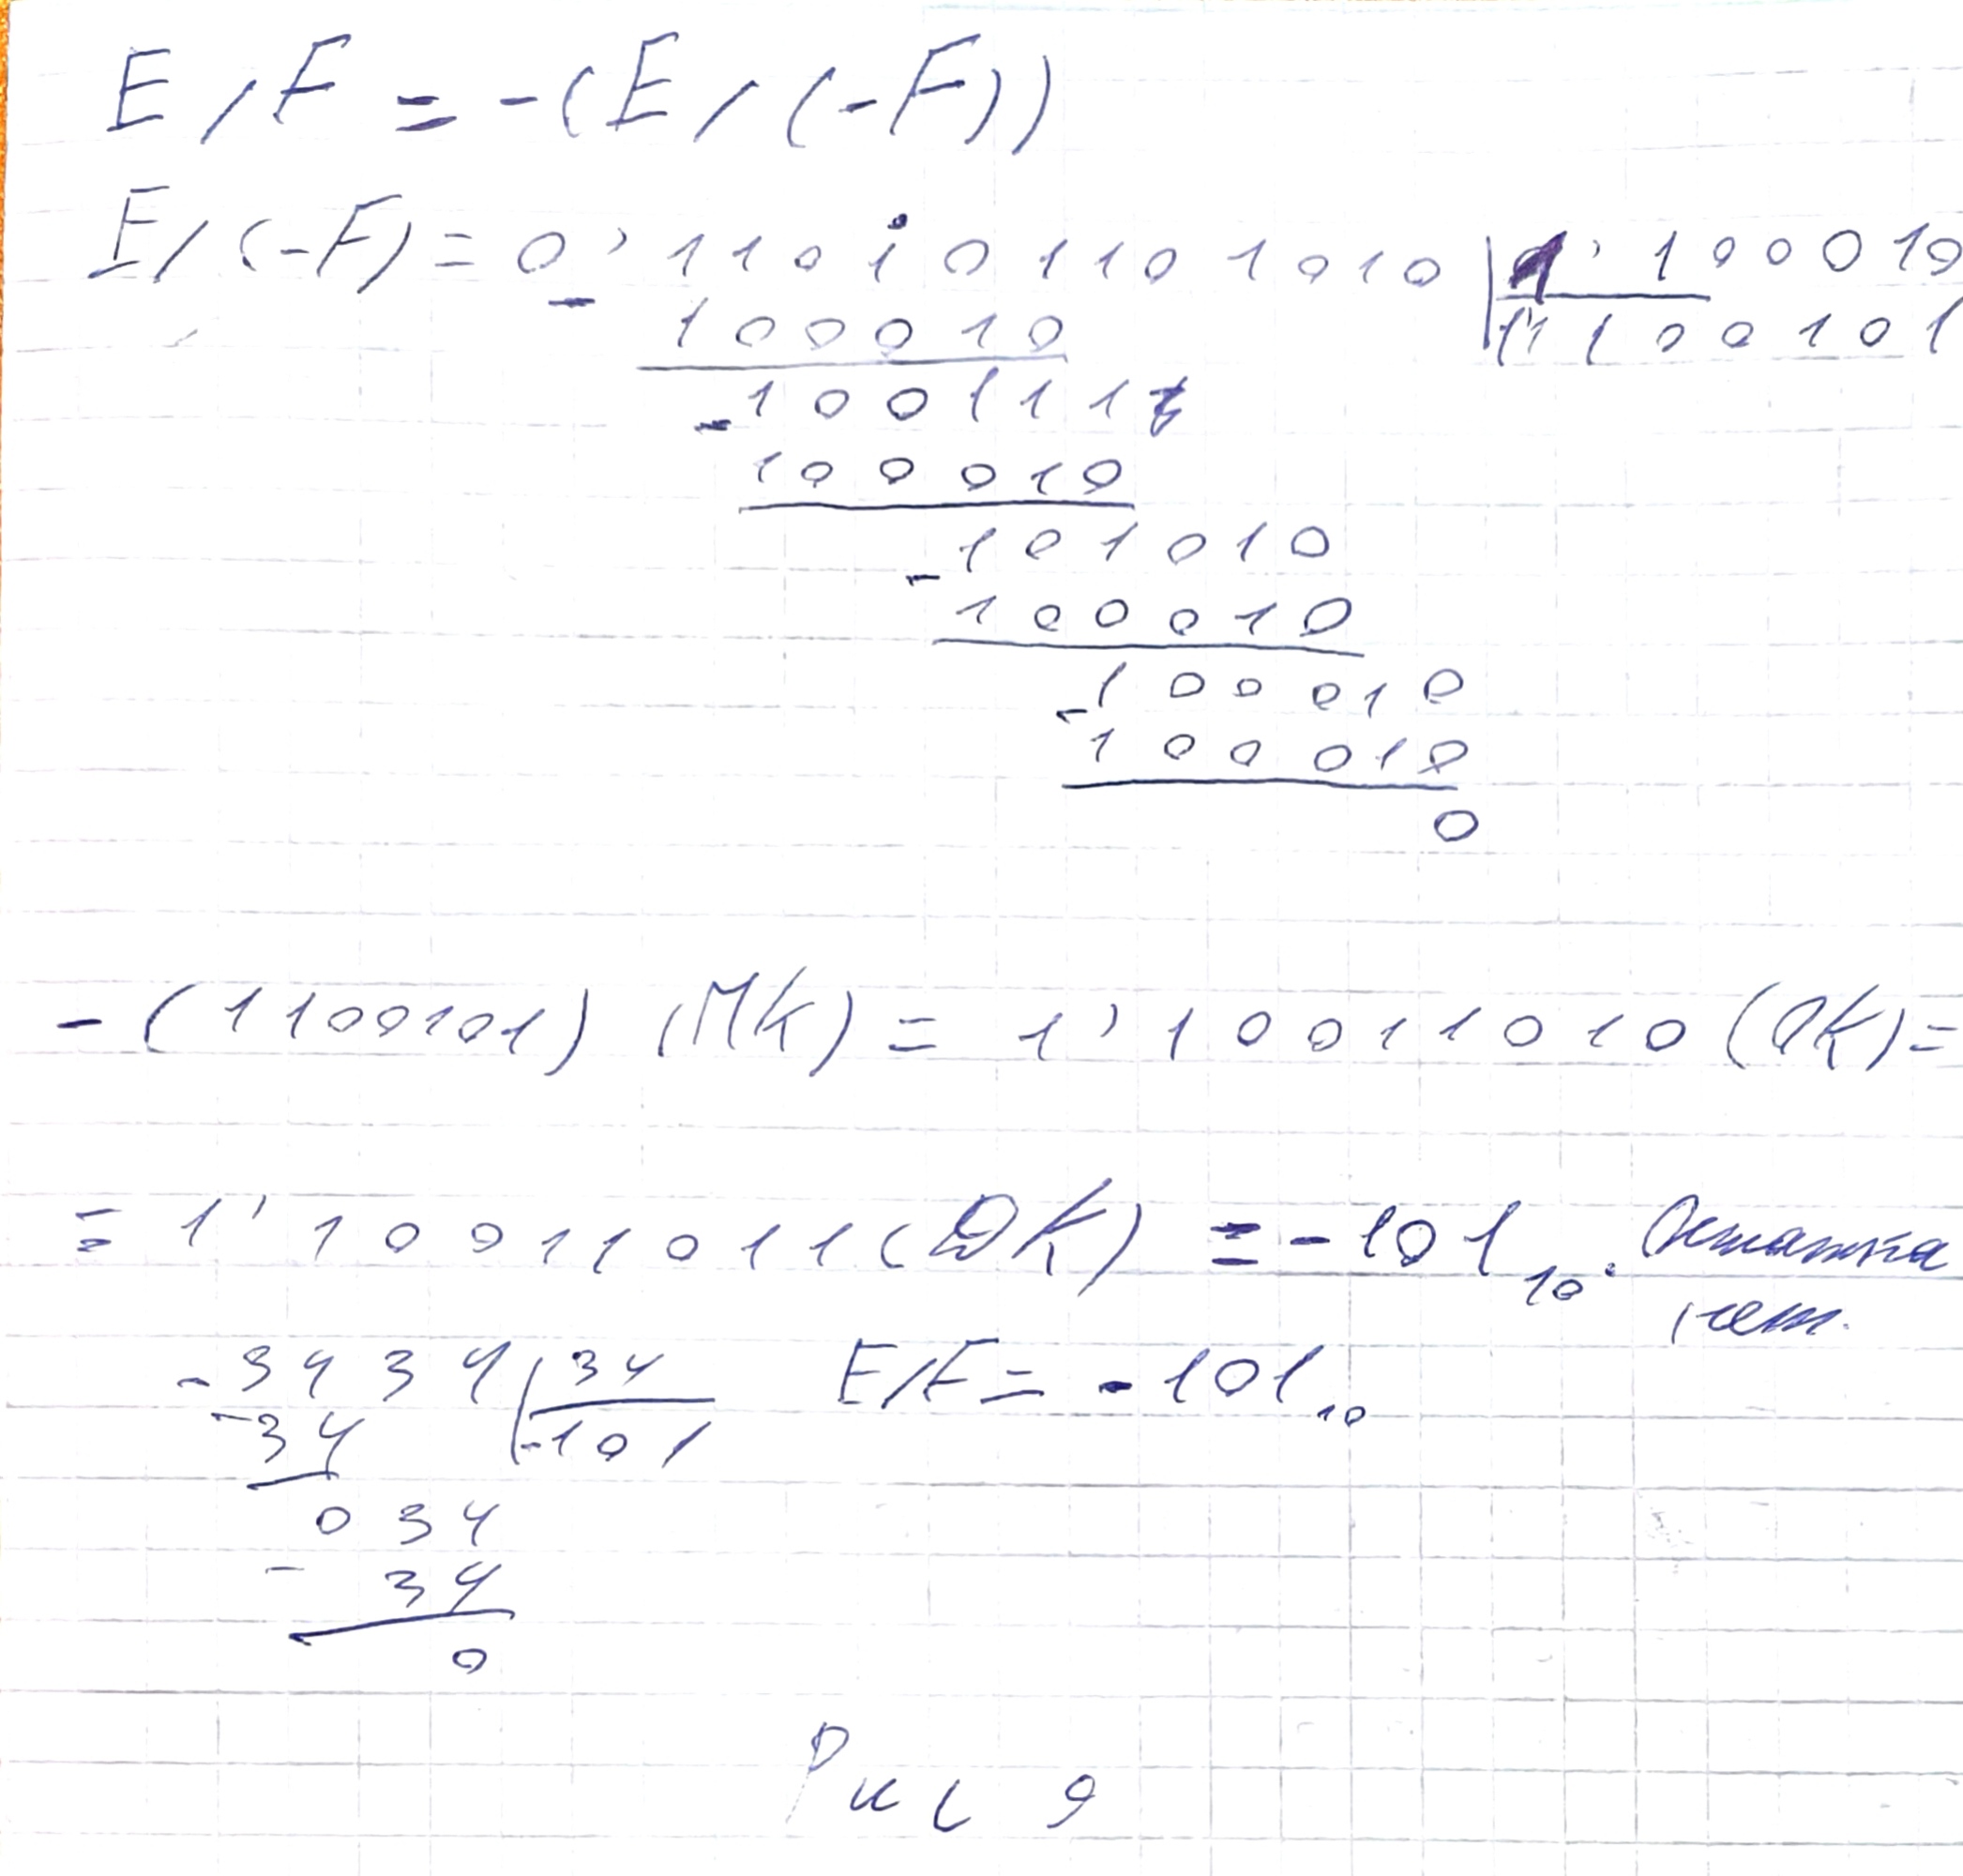 E / F = -(E / (-F))
E / (-F) = 0, 110101101010 | 1, 100010
- 100010 | 1100101
- 1001111
100010
- 101010
100010
- 100010
100010
0
- (1100101) (ПК) = 1, 10011010 (ОК) =
= 1, 10011011 (ДК) = -101₁₀. Остатка
нет.
-3434 | 34 E/F = -101₁₀
-34 | -101
034
- 34
0
Рис 9